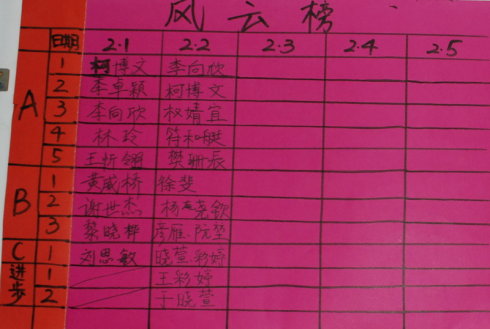 风云榜
日期 2.1 2.2 2.3 2.4 2.5
A 1 柯博文 李向欣
2 李卓颖 柯博文
3 李向欣 权婧宜
4 林玲 符和
5 王忻翎 樊珊辰
B 1 黄威桥 徐斐
2 谢世杰 杨尧钦
3 黎晓桦 彦雁、阮堃
C 1 刘思敏 晓萱、彩婷
进步 1 王彩婷
2 于晓萱